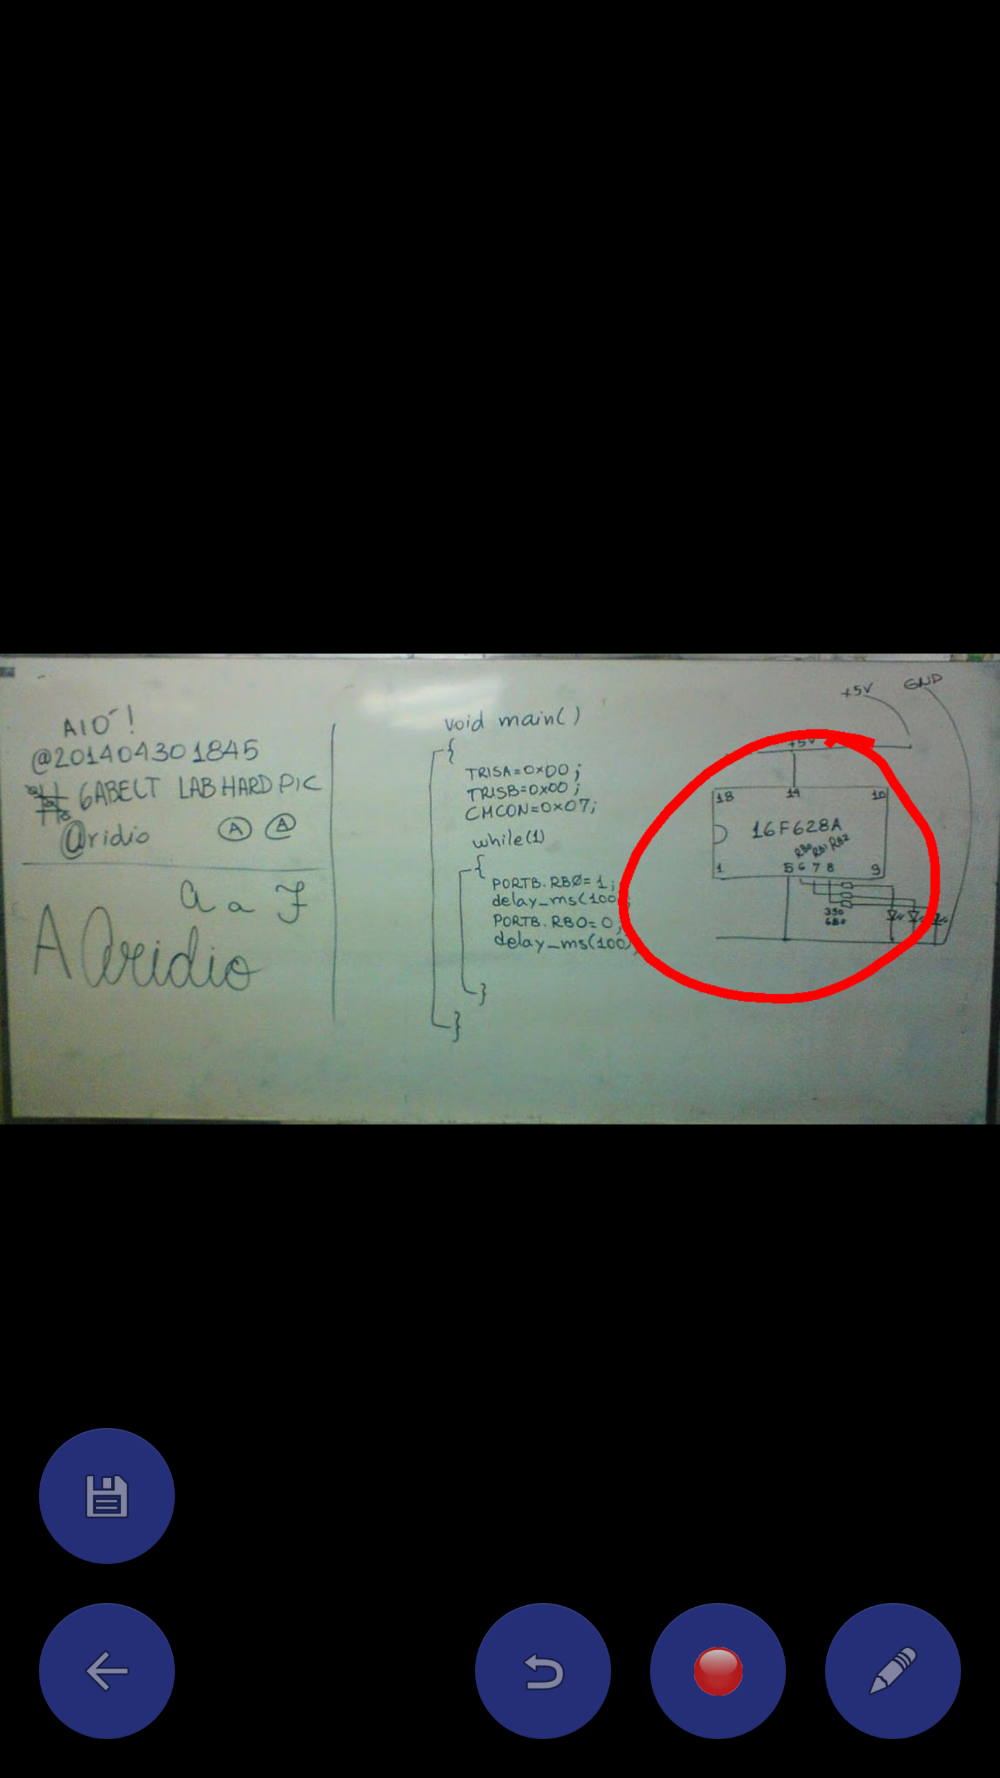 AIO-!
@201404301845
# 6ABELT LAB HARD PIC
@ridio A A
a a J
A Aridio
void main()
{
TRISA=0x00;
TRISB=0x00;
CMCON=0x07;
while(1)
{
PORTB.RBØ=1;
delay_ms(100
PORTB.RB0=0;
delay_ms(100);
}
}
+5V GND
+5V
18 14 10
16F628A
RB0 RB1 RB2
1 5 6 7 8 9
330
680